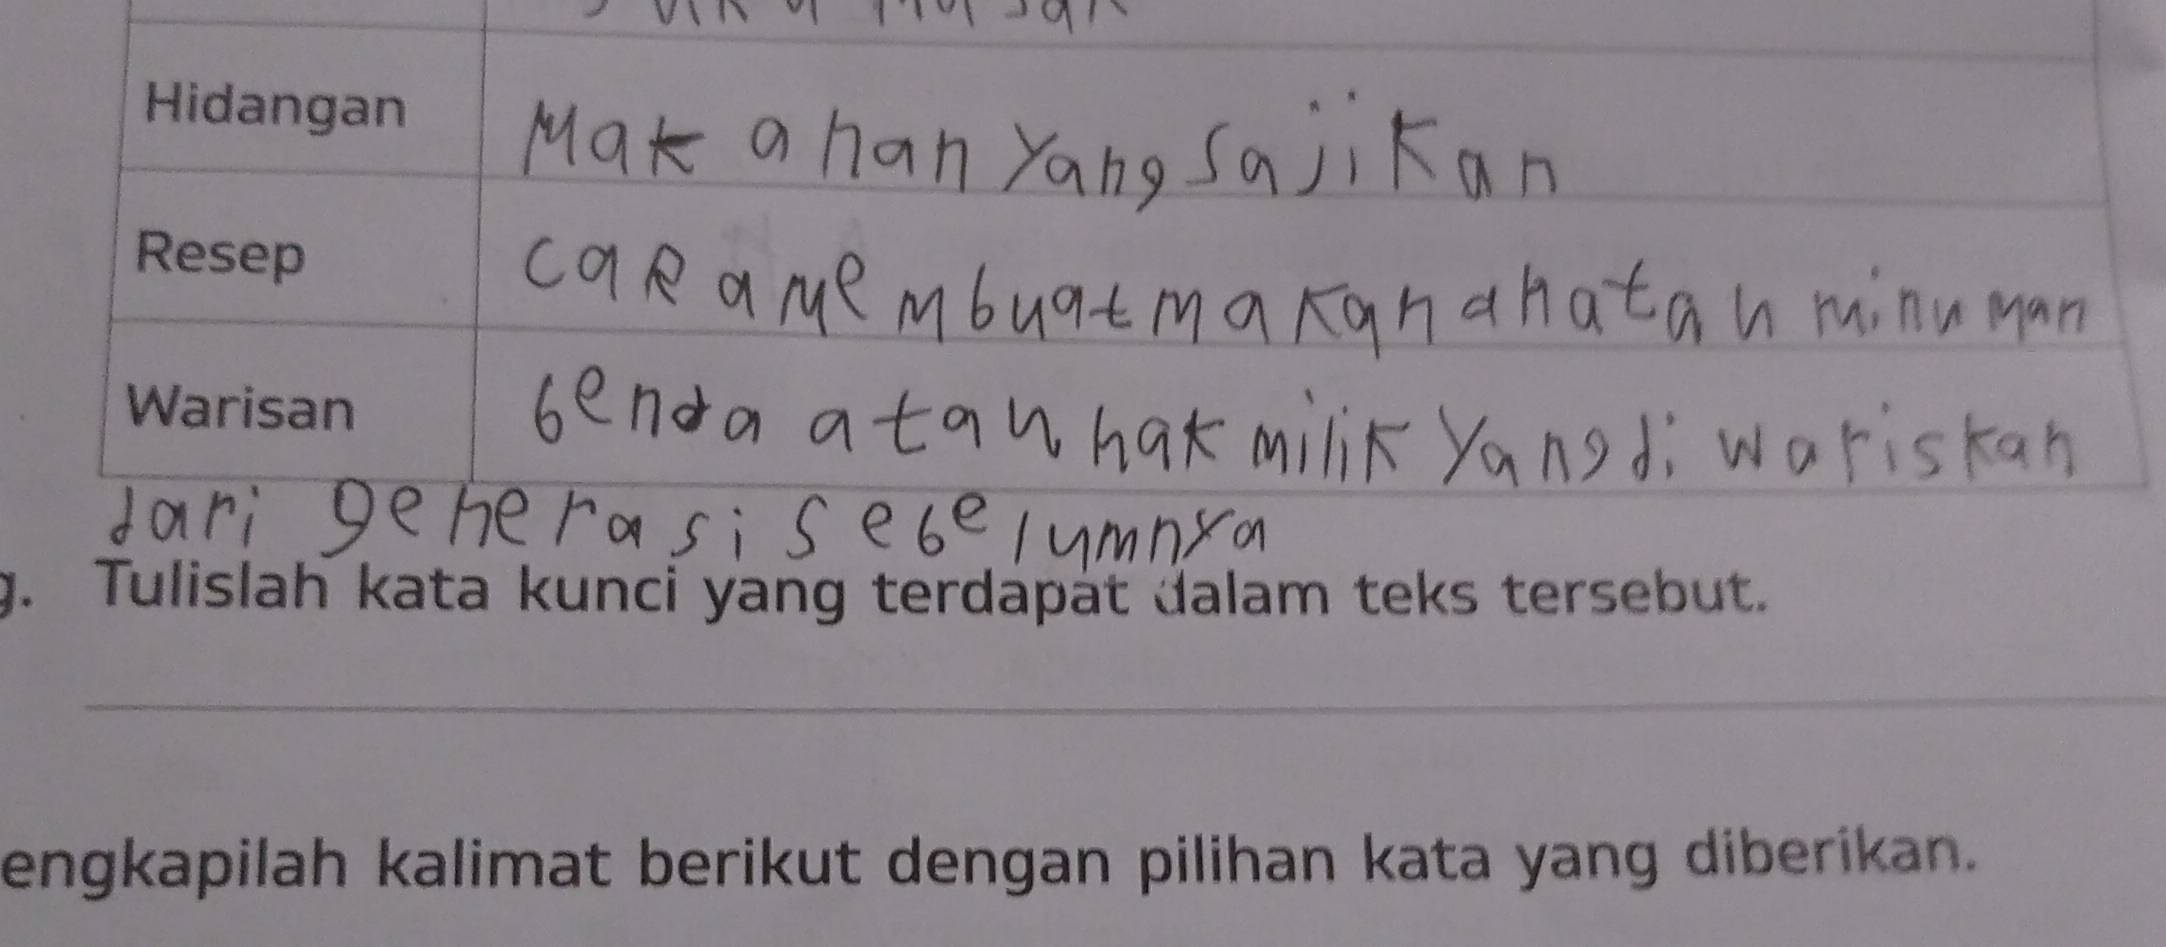 Hidangan Makanan yang sajikan
Resep cara membuat makanan atau minuman
Warisan benda atau hak milik yang di wariskan
dari generasi sebelumnya
g. Tulislah kata kunci yang terdapat dalam teks tersebut.
engkapilah kalimat berikut dengan pilihan kata yang diberikan.